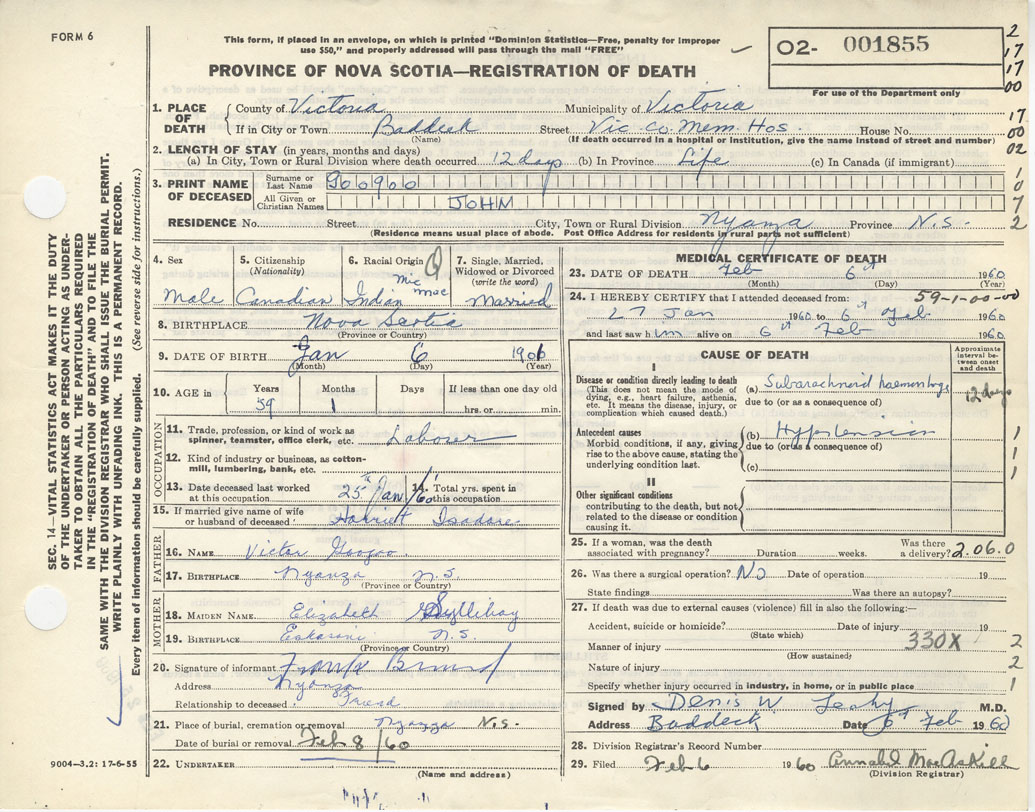 FORM 6
This form, if placed in an envelope, on which is printed "Dominion Statistics—Free, penalty for improper
use $50," and properly addressed will pass through the mail "FREE"
O2- 001855
For use of the Department only
PROVINCE OF NOVA SCOTIA—REGISTRATION OF DEATH
2
17
17
00
17
00
02
1
0
7
2
1. PLACE OF DEATH
County of Victoria Municipality of Victoria
If in City or Town Baddeck Street Vic Co. Mem. Hos. House No.
(Name) (If death occurred in a hospital or institution, give the name instead of street and number)
2. LENGTH OF STAY (in years, months and days)
(a) In City, Town or Rural Division where death occurred 12 days (b) In Province Life (c) In Canada (if immigrant)
3. PRINT NAME OF DECEASED
Surname or Last Name GOOGOO
All Given or Christian Names JOHN
RESIDENCE No. Street City, Town or Rural Division Nyanza Province N.S.
(Residence means usual place of abode. Post Office Address for residents in rural parts not sufficient)
4. Sex Male
5. Citizenship (Nationality) Canadian
6. Racial Origin Mic Mac Indian
7. Single, Married, Widowed or Divorced (write the word) Married
8. BIRTHPLACE Nova Scotia
(Province or Country)
9. DATE OF BIRTH Jan 6 1906
(Month) (Day) (Year)
10. AGE in Years 59 Months 1 Days If less than one day old hrs. or min.
OCCUPATION
11. Trade, profession, or kind of work as
spinner, teamster, office clerk, etc. Laborer
12. Kind of industry or business, as cotton-
mill, lumbering, bank, etc.
13. Date deceased last worked
at this occupation 25th Jan/60
14. Total yrs. spent in
this occupation
15. If married give name of wife
or husband of deceased Harriet Isadore
FATHER
16. NAME Victor Googoo
17. BIRTHPLACE Nyanza N.S.
(Province or Country)
MOTHER
18. MAIDEN NAME Elizabeth Syllibay
19. BIRTHPLACE Eskasoni N.S.
(Province or Country)
20. Signature of informant Frank
Address Nyanza
Relationship to deceased Friend
21. Place of burial, cremation or removal Nyanza N.S.
Date of burial or removal Feb 8/60
22. UNDERTAKER
(Name and address)
MEDICAL CERTIFICATE OF DEATH
23. DATE OF DEATH Feb 6th 1960
(Month) (Day) (Year)
24. I HEREBY CERTIFY that I attended deceased from: 59-1-00-00
27 Jan 1960 to 6th Feb 1960
and last saw him alive on 6th Feb 1960
CAUSE OF DEATH
Approximate interval between onset and death
I
Disease or condition directly leading to death
(This does not mean the mode of
dying, e.g., heart failure, asthenia,
etc. It means the disease, injury, or
complication which caused death.)
(a) Subarachnoid haemorrhage 12 days
due to (or as a consequence of)
Antecedent causes
Morbid conditions, if any, giving
rise to the above cause, stating the
underlying condition last.
(b) Hypertension
due to (or as a consequence of)
(c)
1
1
1
1
II
Other significant conditions
contributing to the death, but not
related to the disease or condition
causing it.
25. If a woman, was the death
associated with pregnancy? Duration weeks. Was there
a delivery? 2.06.0
26. Was there a surgical operation? No Date of operation 19
State findings Was there an autopsy?
27. If death was due to external causes (violence) fill in also the following:—
Accident, suicide or homicide? Date of injury 19
(State which)
Manner of injury 330X 2
(How sustained)
Nature of injury 2
Specify whether injury occurred in industry, in home, or in public place 1
Signed by Denis W Leahy M.D.
Address Baddeck Date 6th Feb 1960
28. Division Registrar's Record Number
29. Filed Feb 6 1960 Annabel MacAskill
(Division Registrar)
SEC. 14—VITAL STATISTICS ACT MAKES IT THE DUTY
OF THE UNDERTAKER OR PERSON ACTING AS UNDER-
TAKER TO OBTAIN ALL THE PARTICULARS REQUIRED
IN THE "REGISTRATION OF DEATH" AND TO FILE THE
SAME WITH THE DIVISION REGISTRAR WHO SHALL ISSUE THE BURIAL PERMIT.
WRITE PLAINLY WITH UNFADING INK. THIS IS A PERMANENT RECORD.
Every item of information should be carefully supplied. (See reverse side for instructions.)
9004—3.2: 17-6-55